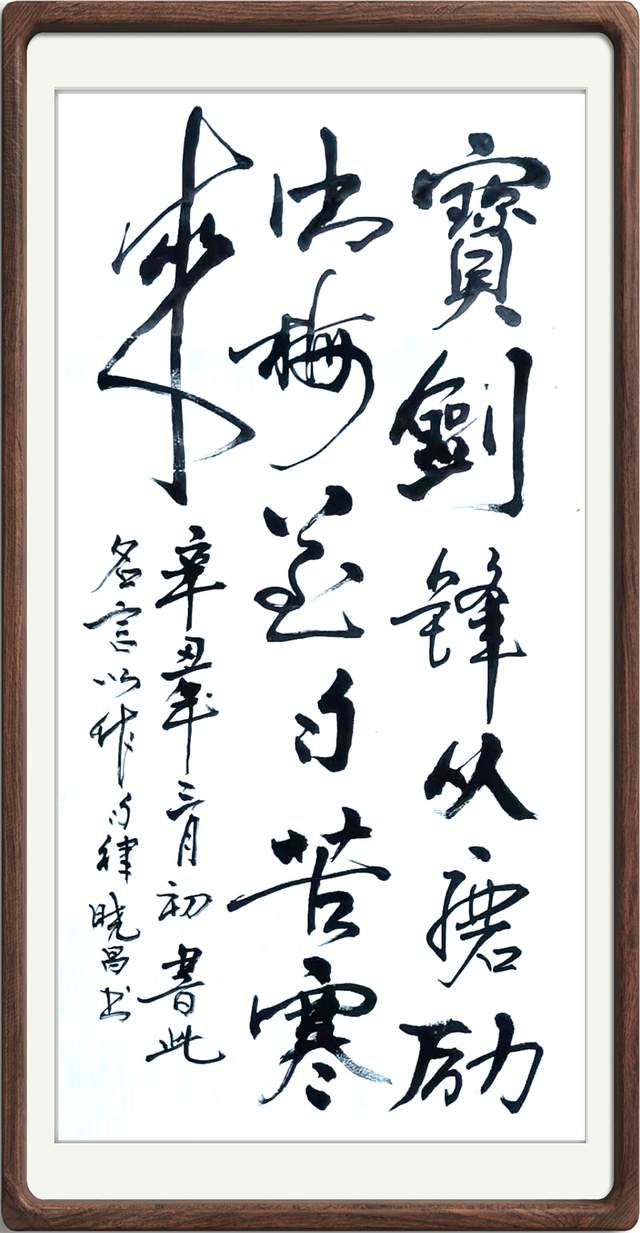 寶劍鋒从磨励
出梅花自苦寒
來
辛丑年三月初書此
名言以作自律曉昌书